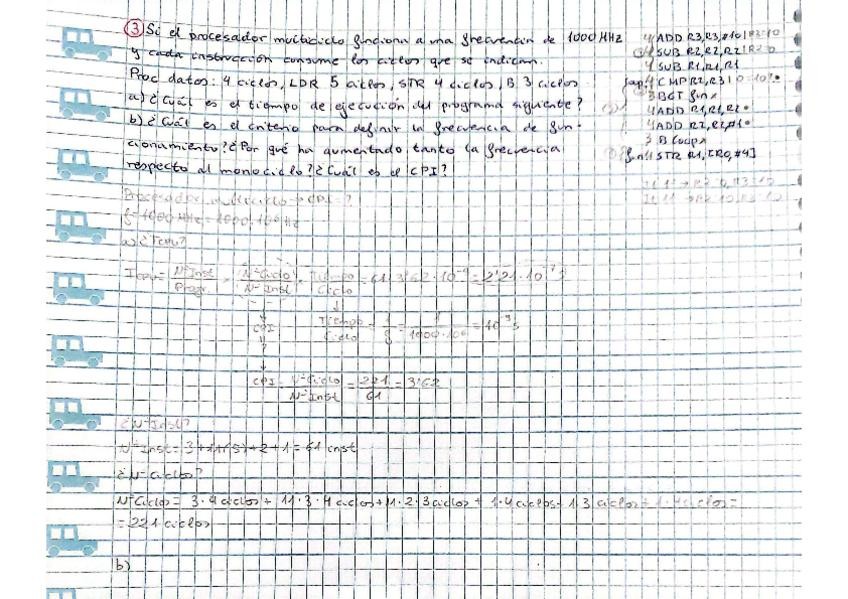 ③ Si el procesador multiciclo funciona a una frecuencia de 1000 MHz
y cada instrucción consume los ciclos que se indican.
Proc datos: 4 ciclos, LDR 5 ciclos, STR 4 ciclos, B 3 ciclos
a) ¿Cuál es el tiempo de ejecución del programa siguiente?
b) ¿Cuál es el criterio para definir la frecuencia de fun-
cionamiento? ¿Por qué ha aumentado tanto la frecuencia
respecto al monociclo? ¿Cuál es el CPI?
4 ADD R3,R3,#10
4 SUB R2,R2,R2
4 SUB R1,R1,R1
4 CMP R2,R3
3 BGT finx
4 ADD R1,R1,R2
4 ADD R2,R2,#1
3 B loopx
4 STR R1,[R0,#4]
Procesador multiciclo → CPI = ?
f = 1000 MHz = 1000·10⁶ Hz
a) ¿Tcpu?
Tcpu = Nº Inst / Progr. · Nº Ciclo / Nº Inst · Tiempo / Ciclo = 61·3'62·10⁻⁹ = 2'21·10⁻⁷ s
CPI
?
Tiempo / Ciclo = 1 / f = 1 / 1000·10⁶ = 10⁻⁹ s
CPI = Nº Ciclo / Nº Inst = 221 / 61 = 3'62
¿Nº Inst?
Nº Inst = 3+11·(5)+2+1 = 61 inst
¿Nº Ciclos?
Nº Ciclo = 3·4 ciclos + 11·3·4 ciclos + 11·2·3 ciclos + 1·4 ciclos + 1·3 ciclos + 1·4 ciclos =
= 221 ciclos
b)